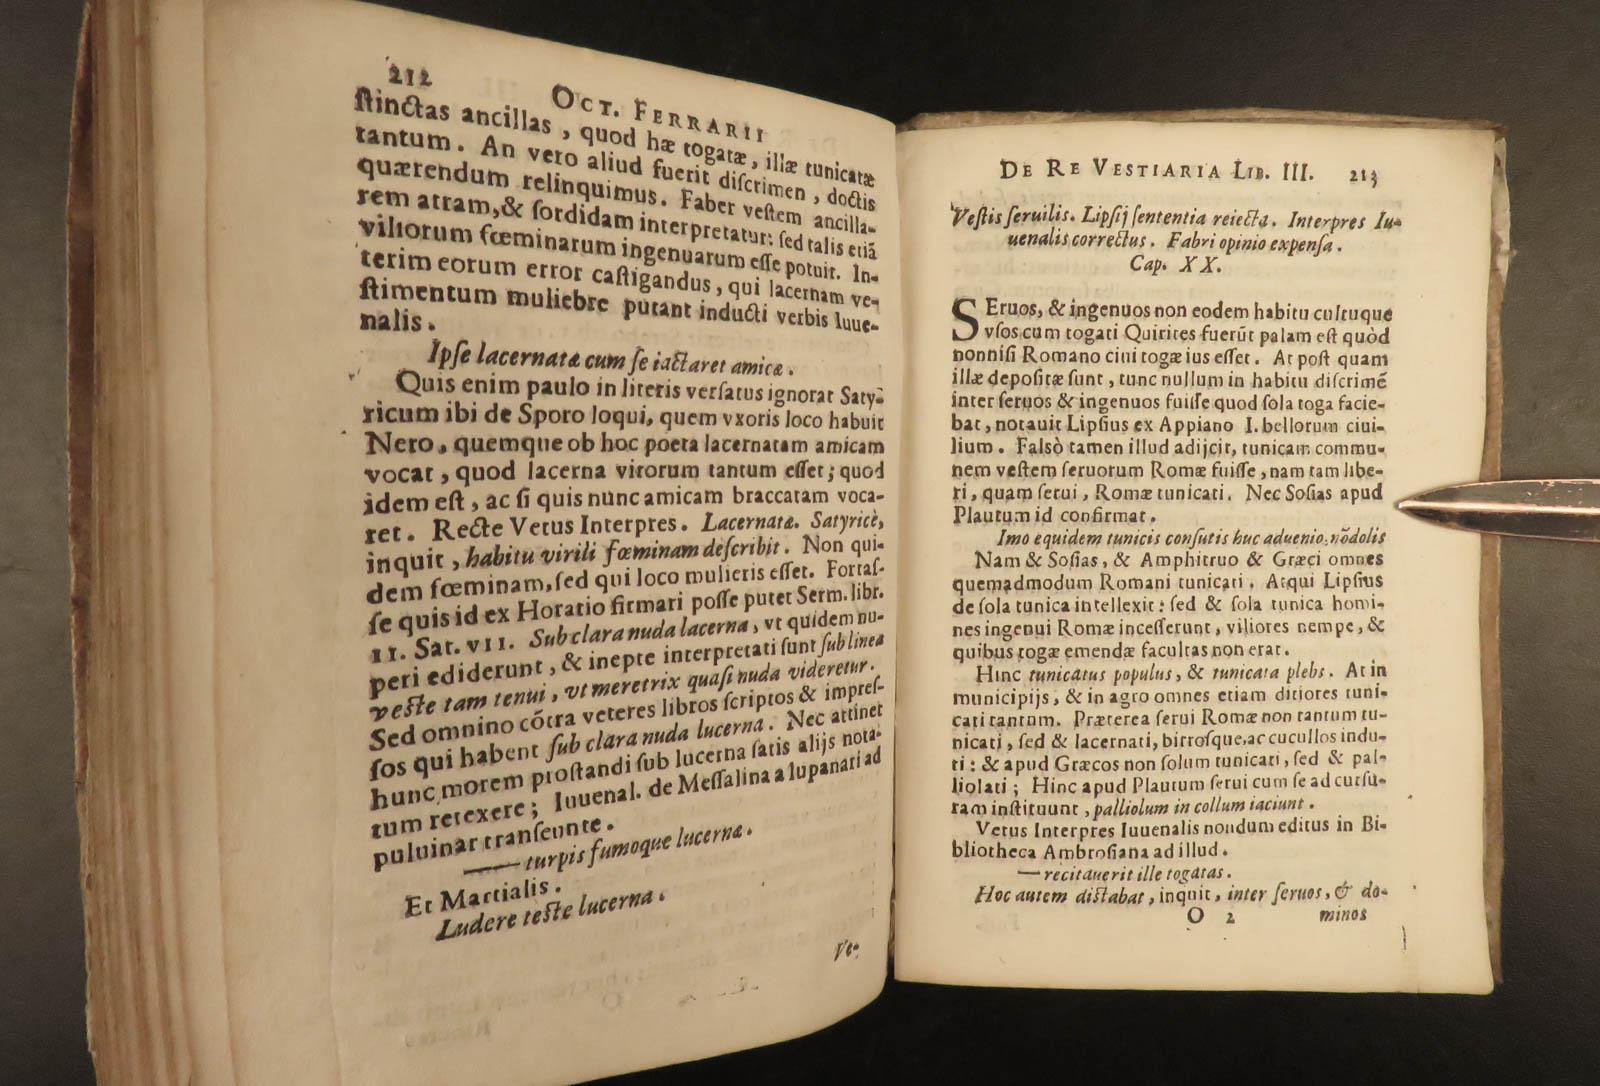 212
OCT. FERRARII
ſtinctas ancillas, quod hæ togatæ, illæ tunicatæ
tantum. An vero aliud fuerit diſcrimen, doctis
quærendum relinquimus. Faber veſtem ancilla-
rem atram, & ſordidam interpretatur: ſed talis etiã
viliorum fœminarum ingenuarum eſſe potuit. In-
terim eorum error caſtigandus, qui lacernam ve-
ſtimentum muliebre putant inducti verbis Iuue-
nalis.
Ipſe lacernatæ cum ſe iactaret amicæ.
Quis enim paulo in literis verſatus ignorat Saty-
ricum ibi de Sporo loqui, quem vxoris loco habuit
Nero, quemque ob hoc poeta lacernatam amicam
vocat, quod lacerna virorum tantum eſſet; quod
idem eſt, ac ſi quis nunc amicam braccatam voca-
ret. Recte Vetus Interpres. Lacernatæ. Satyricè,
inquit, habitu virili fœminam deſcribit. Non qui-
dem fœminam, ſed qui loco mulieris eſſet. Fortaſ-
ſe quis id ex Horatio firmari poſſe putet Serm. libr.
11. Sat. VII. Sub clara nuda lacerna, vt quidem nu-
peri ediderunt, & inepte interpretati ſunt ſub linea
veſte tam tenui, vt meretrix quaſi nuda videretur.
Sed omnino cõtra veteres libros ſcriptos & impreſ-
ſos qui habent ſub clara nuda lucerna. Nec attinet
hunc morem proſtandi ſub lucerna ſatis alijs nota-
tum retexere; Iuuenal. de Meſſalina a lupanari ad
puluinar tranſeunte.
—— turpis fumoque lucernæ.
Et Martialis.
Ludere teſte lucerna.
Ve-
DE RE VESTIARIA LIB. III. 213
Veſtis ſeruilis. Lipſij ſententia reiecta. Interpres Iu-
uenalis correctus. Fabri opinio expenſa.
Cap. XX.
SEruos, & ingenuos non eodem habitu cultuque
vſos cum togati Quirites fuerũt palam eſt quòd
nonniſi Romano ciui togæ ius eſſet. At poſt quam
illæ depoſitæ ſunt, tunc nullum in habitu diſcrimẽ
inter ſeruos & ingenuos fuiſſe quod ſola toga facie-
bat, notauit Lipſius ex Appiano I. bellorum ciui-
lium. Falsò tamen illud adijcit, tunicam commu-
nem veſtem ſeruorum Romæ fuiſſe, nam tam libe-
ri, quam ſerui, Romæ tunicati. Nec Soſias apud
Plautum id confirmat.
Imo equidem tunicis conſutis huc aduenio, nõ dolis
Nam & Soſias, & Amphitruo & Græci omnes
quemadmodum Romani tunicati. Atqui Lipſius
de ſola tunica intellexit: ſed & ſola tunica homi-
nes ingenui Romæ inceſſerunt, viliores nempe, &
quibus togæ emendæ facultas non erat.
Hinc tunicatus populus, & tunicata plebs. At in
municipijs, & in agro omnes etiam ditiores tuni-
cati tantum. Præterea ſerui Romæ non tantum tu-
nicati, ſed & lacernati, birroſque, ac cucullos indu-
ti: & apud Græcos non ſolum tunicati, ſed & pal-
liolati; Hinc apud Plautum ſerui cum ſe ad curſu-
ram inſtituunt, palliolum in collum iaciunt.
Vetus Interpres Iuuenalis nondum editus in Bi-
bliotheca Ambroſiana ad illud.
— recitauerit ille togatas.
Hoc autem diſtabat, inquit, inter ſeruos, & do-
O 2 minos